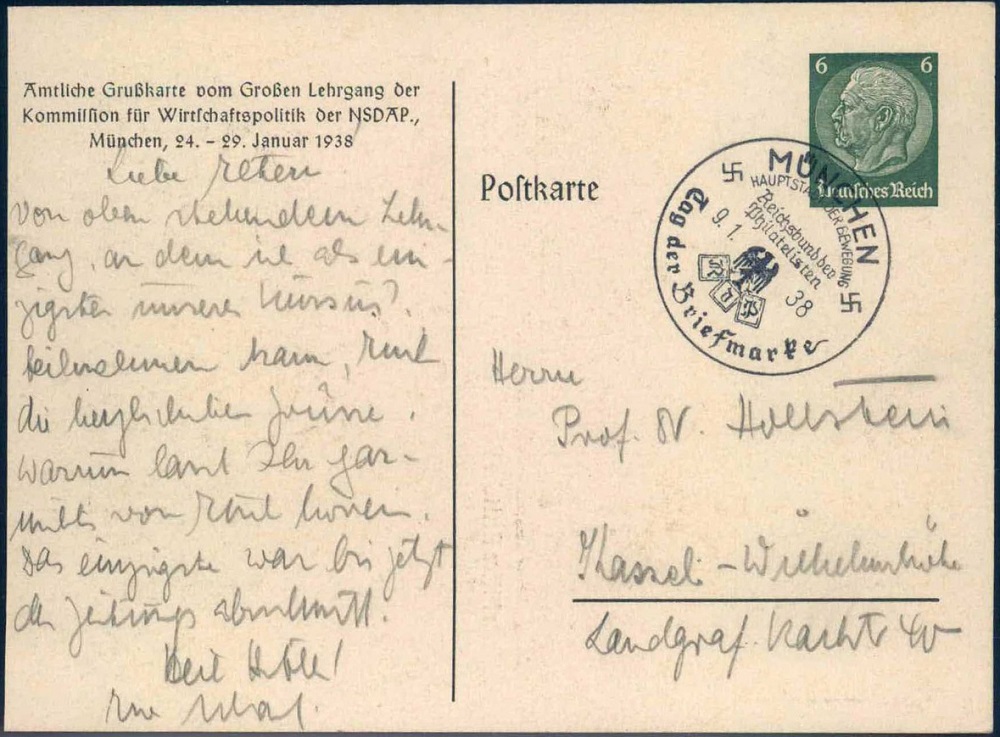 Amtliche Grußkarte vom Großen Lehrgang der
Kommission für Wirtschaftspolitik der NSDAP.,
München, 24. - 29. Januar 1938
Liebe Eltern
von oben stehendem Lehr-
gang, an dem ich als ein-
zigster unseres Kursus
teilnehmen kann, Euch
die herzlichsten Grüsse.
Warum lasst Ihr gar-
nichts von Euch hören.
Das einzigste war bis jetzt
der Zeitungsabschnitt.
Heil Hitler!
Postkarte
6 6
Deutsches Reich
MÜNCHEN
HAUPTSTADT DER BEWEGUNG
Reichsbund der
Philatelisten
9. 1. 38
R d P
Tag der Briefmarke
Herrn
Prof. Dr. Hollstein
Kassel-Wilhelmshöhe
Landgraf Karlstr